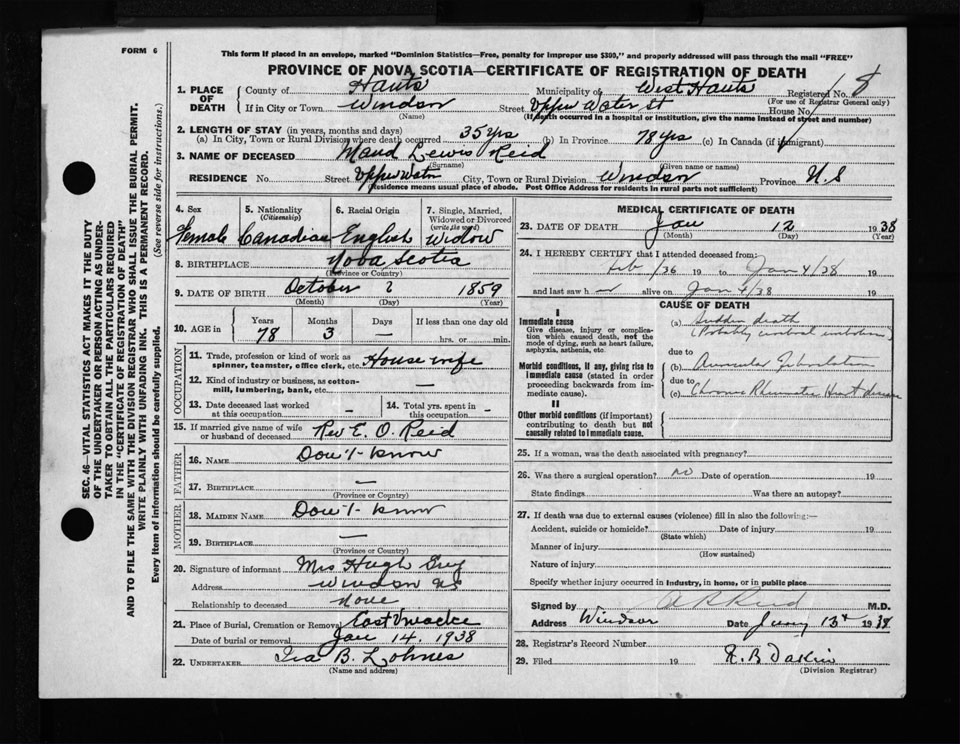 FORM 6
This form if placed in an envelope, marked "Dominion Statistics—Free, penalty for improper use $300," and properly addressed will pass through the mail "FREE"
PROVINCE OF NOVA SCOTIA—CERTIFICATE OF REGISTRATION OF DEATH
1. PLACE OF DEATH County of Hants Municipality of West Hants Registered No. 8
(For use of Registrar General only)
If in City or Town Windsor Street Upper Water St House No.
(Name) (If death occurred in a hospital or institution, give the name instead of street and number)
2. LENGTH OF STAY (in years, months and days)
(a) In City, Town or Rural Division where death occurred 35 yrs (b) In Province 78 yrs (c) In Canada (if immigrant)
3. NAME OF DECEASED Maud Lewis Reid
(Surname) (Given name or names)
RESIDENCE No. Street Upper Water City, Town or Rural Division Windsor Province N.S
(Residence means usual place of abode. Post Office Address for residents in rural parts not sufficient)
4. Sex 5. Nationality (Citizenship) 6. Racial Origin 7. Single, Married, Widowed or Divorced (write the word)
Female Canadian English Widow
8. BIRTHPLACE Nova Scotia
(Province or Country)
9. DATE OF BIRTH October 2 1859
(Month) (Day) (Year)
10. AGE in Years Months Days If less than one day old
78 3 — hrs. or min.
OCCUPATION
11. Trade, profession or kind of work as spinner, teamster, office clerk, etc. House wife
12. Kind of industry or business, as cotton-mill, lumbering, bank, etc. —
13. Date deceased last worked at this occupation - 14. Total yrs. spent in this occupation -
15. If married give name of wife or husband of deceased Rev E. O. Reid
FATHER
16. NAME Don't know
17. BIRTHPLACE —
(Province or Country)
MOTHER
18. MAIDEN NAME Don't know
19. BIRTHPLACE —
(Province or Country)
20. Signature of informant Mrs Hugh
Address Windsor NS
Relationship to deceased None
21. Place of Burial, Cremation or Removal East Uniacke
Date of burial or removal Jan 14, 1938
22. UNDERTAKER Ira B. Lohnes
(Name and address)
MEDICAL CERTIFICATE OF DEATH
23. DATE OF DEATH Jan 12 1938
(Month) (Day) (Year)
24. I HEREBY CERTIFY that I attended deceased from:
Feb 1/36 19 to Jan 4/38 19
and last saw her alive on Jan 4/38 19
CAUSE OF DEATH
I
Immediate cause
Give disease, injury or complication which caused death, not the mode of dying, such as heart failure, asphyxia, asthenia, etc.
(a) Sudden death
(Probably cerebral embolism)
due to
Morbid conditions, if any, giving rise to immediate cause (stated in order proceeding backwards from immediate cause).
(b) Auricular Fibrillation
due to
(c) Chronic Rheumatic Heart disease
II
Other morbid conditions (if important) contributing to death but not causally related to immediate cause.
25. If a woman, was the death associated with pregnancy?
26. Was there a surgical operation? No Date of operation 19
State findings Was there an autopsy?
27. If death was due to external causes (violence) fill in also the following:—
Accident, suicide or homicide? Date of injury 19
(State which)
Manner of injury
(How sustained)
Nature of injury
Specify whether injury occurred in industry, in home, or in public place
Signed by M.D.
Address Windsor Date Jany 13th 1938
28. Registrar's Record Number
29. Filed 19
(Division Registrar)
SEC. 46—VITAL STATISTICS ACT MAKES IT THE DUTY
OF THE UNDERTAKER OR PERSON ACTING AS UNDER-
TAKER TO OBTAIN ALL THE PARTICULARS REQUIRED
IN THE "CERTIFICATE OF REGISTRATION OF DEATH"
AND TO FILE THE SAME WITH THE DIVISION REGISTRAR WHO SHALL ISSUE THE BURIAL PERMIT.
WRITE PLAINLY WITH UNFADING INK. THIS IS A PERMANENT RECORD.
Every item of information should be carefully supplied. (See reverse side for instructions.)